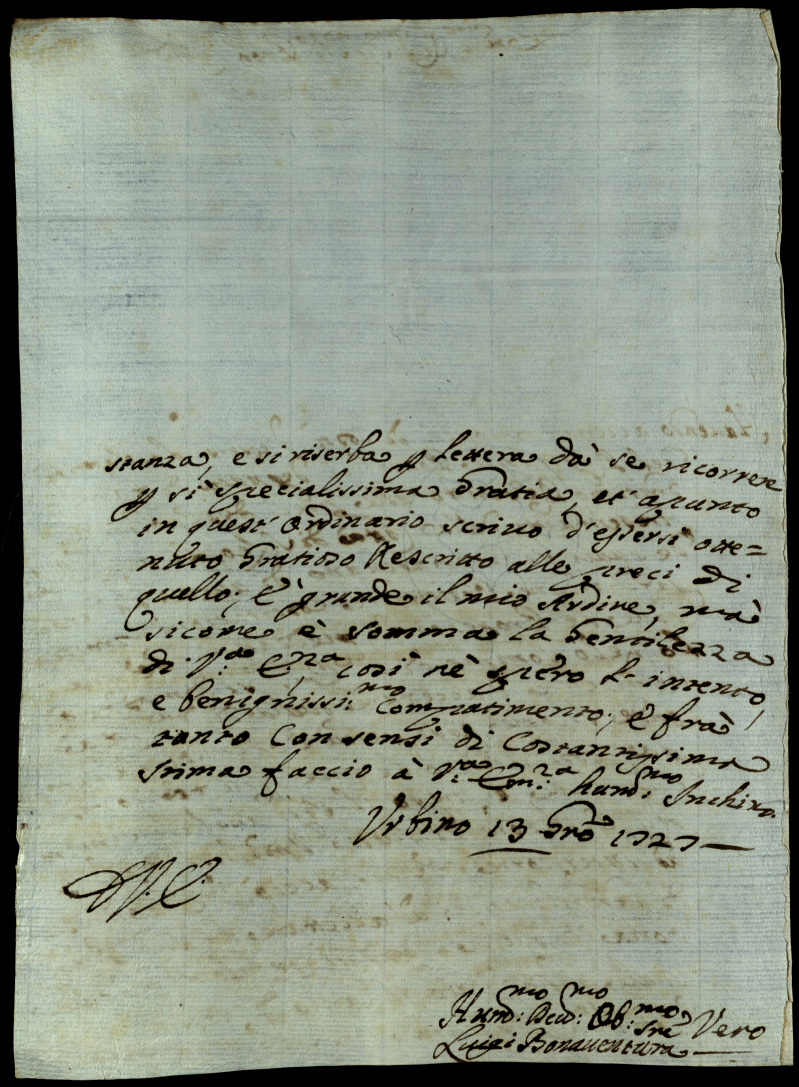 stanza, e si riserba p lettera dà se ricorrere
p sì specialissima Gratia, et apunto
in quest' Ordinario scrivo d'essersi otte=
nuto Gratioso Rescritto alle preci di
quello; È grande il mio Ardire, mà
sicome è somma la Gentilezza
di V.ra Em.za così nè spero l'intento,
e benigniss:mo Compatimento; e frà
tanto Con sensi di Costantissima
stima faccio à V.ra Em:za hum:mo Inchino
Urbino 13 Gro 1727
Hum:mo Dev:mo Ob:mo Sre Vero
Luigi Bonaventura